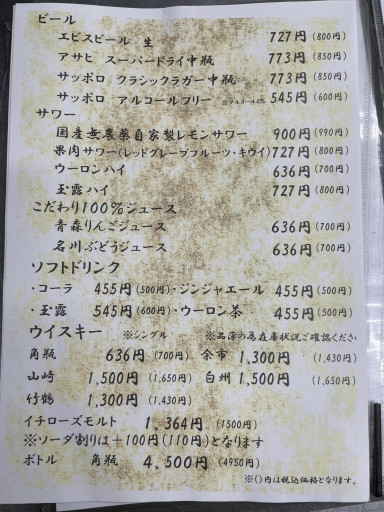 ビール
エビスビール 生 727円(800円)
アサヒ スーパードライ中瓶 773円(850円)
サッポロ クラシックラガー中瓶 773円(850円)
サッポロ アルコールフリー 545円(600円)
サワー
国産無農薬自家製レモンサワー 900円(990円)
果肉サワー(レッドグレープフルーツ・キウイ)727円(800円)
ウーロンハイ 636円(700円)
玉露ハイ 727円(800円)
こだわり100%ジュース
青森りんごジュース 636円(700円)
名川ぶどうジュース 636円(700円)
ソフトドリンク
・コーラ 455円(500円)・ジンジャエール 455円(500円)
・玉露 545円(600円)・ウーロン茶 455円(500円)
ウイスキー ※シングル ※品薄の為在庫状況ご確認ください
角瓶 636円(700円) 余市 1,300円(1,430円)
山崎 1,500円(1,650円) 白州 1,500円(1,650円)
竹鶴 1,300円(1,430円)
イチローズモルト 1,364円(1500円)
※ソーダ割りは+100円(110円)となります
ボトル 角瓶 4,500円(4950円)
※()内は税込価格となります。